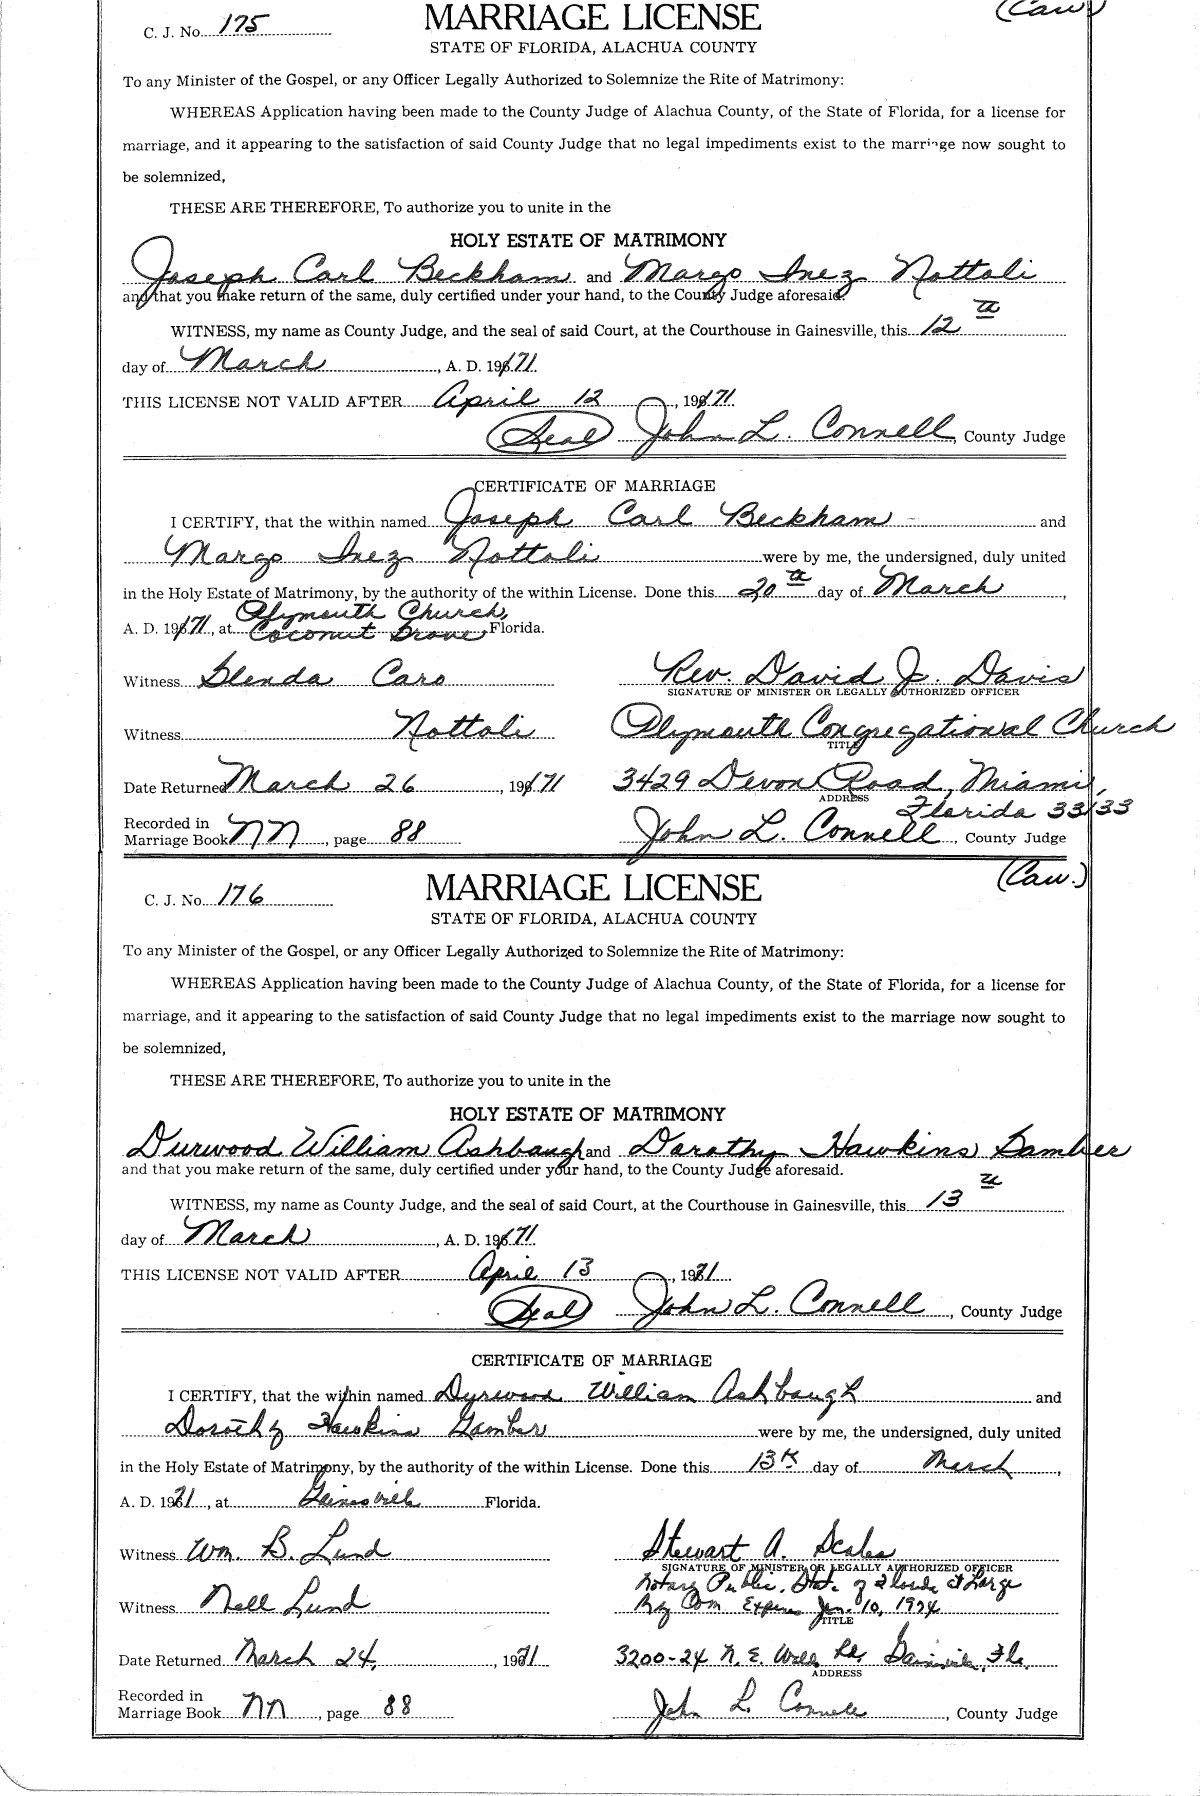 (Caw.)
C. J. No. 175 MARRIAGE LICENSE
STATE OF FLORIDA, ALACHUA COUNTY
To any Minister of the Gospel, or any Officer Legally Authorized to Solemnize the Rite of Matrimony:
WHEREAS Application having been made to the County Judge of Alachua County, of the State of Florida, for a license for
marriage, and it appearing to the satisfaction of said County Judge that no legal impediments exist to the marriage now sought to
be solemnized,
THESE ARE THEREFORE, To authorize you to unite in the
HOLY ESTATE OF MATRIMONY
Joseph Carl Beckham and Margo Inez Nottoli
and that you make return of the same, duly certified under your hand, to the County Judge aforesaid.
WITNESS, my name as County Judge, and the seal of said Court, at the Courthouse in Gainesville, this 12th
day of March, A. D. 1971.
THIS LICENSE NOT VALID AFTER April 12, 1971.
(Seal) John L. Connell, County Judge
CERTIFICATE OF MARRIAGE
I CERTIFY, that the within named Joseph Carl Beckham and
Margo Inez Nottoli were by me, the undersigned, duly united
in the Holy Estate of Matrimony, by the authority of the within License. Done this 20th day of March,
Plymouth Church,
A. D. 1971, at Coconut Grove, Florida.
Witness Glenda Caro Rev. David J. Davis
SIGNATURE OF MINISTER OR LEGALLY AUTHORIZED OFFICER
Witness Nottoli Plymouth Congregational Church
TITLE
Date Returned March 26, 1971 3429 Devon Road, Miami,
ADDRESS Florida 33133
Recorded in
Marriage Book NN, page 88 John L. Connell, County Judge
(Caw.)
C. J. No. 176 MARRIAGE LICENSE
STATE OF FLORIDA, ALACHUA COUNTY
To any Minister of the Gospel, or any Officer Legally Authorized to Solemnize the Rite of Matrimony:
WHEREAS Application having been made to the County Judge of Alachua County, of the State of Florida, for a license for
marriage, and it appearing to the satisfaction of said County Judge that no legal impediments exist to the marriage now sought to
be solemnized,
THESE ARE THEREFORE, To authorize you to unite in the
HOLY ESTATE OF MATRIMONY
Durwood William Ashbaugh and Dorothy Hawkins Gamber
and that you make return of the same, duly certified under your hand, to the County Judge aforesaid.
WITNESS, my name as County Judge, and the seal of said Court, at the Courthouse in Gainesville, this 13th
day of March, A. D. 1971.
THIS LICENSE NOT VALID AFTER April 13, 1971
(Seal) John L. Connell, County Judge
CERTIFICATE OF MARRIAGE
I CERTIFY, that the within named Dyrwood William Ashbaugh and
Dorothy Hawkins Gamber were by me, the undersigned, duly united
in the Holy Estate of Matrimony, by the authority of the within License. Done this 13th day of March,
A. D. 1971, at Gainesville Florida.
Witness Wm. B. Lund Stewart A. Scales
SIGNATURE OF MINISTER OR LEGALLY AUTHORIZED OFFICER
Notary Public, State of Florida at Large
Witness Nell Lund My Com Expires Jan. 10, 1974
TITLE
Date Returned March 24, 1971 3200-24 N. E. Rd, Gainesville, Fla.
ADDRESS
Recorded in
Marriage Book NN, page 88 John L. Connell, County Judge